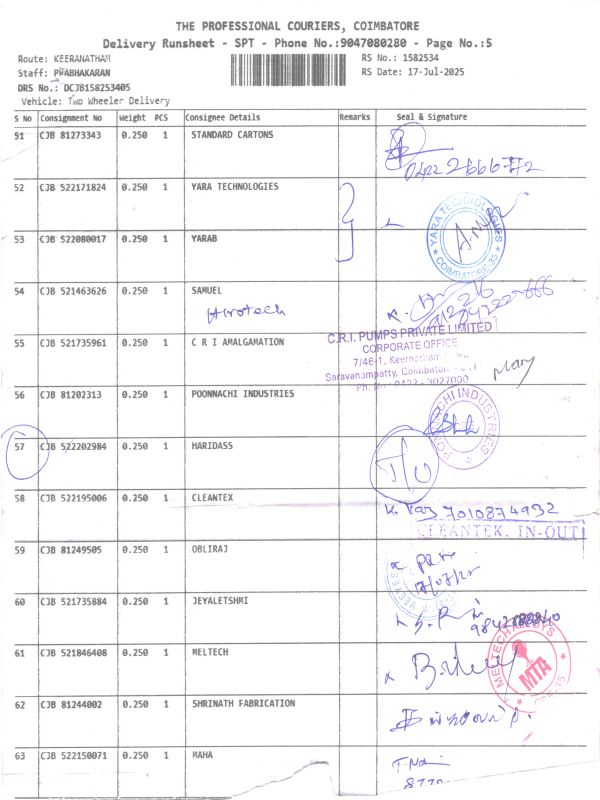 THE PROFESSIONAL COURIERS, COIMBATORE
Delivery Runsheet - SPT - Phone No.:9047080280 - Page No.:5
Route: KEERANATHAM
Staff: PRABHAKARAN
DRS No.: DCJB158253405
Vehicle: Two Wheeler Delivery
RS No.: 1582534
RS Date: 17-Jul-2025
S No Consignment No Weight PCS Consignee Details Remarks Seal & Signature
51 CJB 81273343 0.250 1 STANDARD CARTONS
52 CJB 522171824 0.250 1 YARA TECHNOLOGIES
YARA TECHNOLOGIES
COIMBATORE-35
53 CJB 522080017 0.250 1 YARAB
54 CJB 521463626 0.250 1 SAMUEL
55 CJB 521735961 0.250 1 C R I AMALGAMATION
C.R.I. PUMPS PRIVATE LIMITED
CORPORATE OFFICE
7/46-1, Keernatham
Saravanampatty, Coimbatore
3027000
Mary
56 CJB 81202313 0.250 1 POONNACHI INDUSTRIES
INDUSTRIES
57 CJB 522202984 0.250 1 HARIDASS
58 CJB 522195006 0.250 1 CLEANTEX
7010874932
CLEANTEK. IN-OUT
59 CJB 81249505 0.250 1 OBLIRAJ
60 CJB 521735884 0.250 1 JEYALETSHMI
61 CJB 521846408 0.250 1 MELTECH
MELTECH ALLOYS
MTA
62 CJB 81244002 0.250 1 SHRINATH FABRICATION
63 CJB 522150071 0.250 1 MAHA